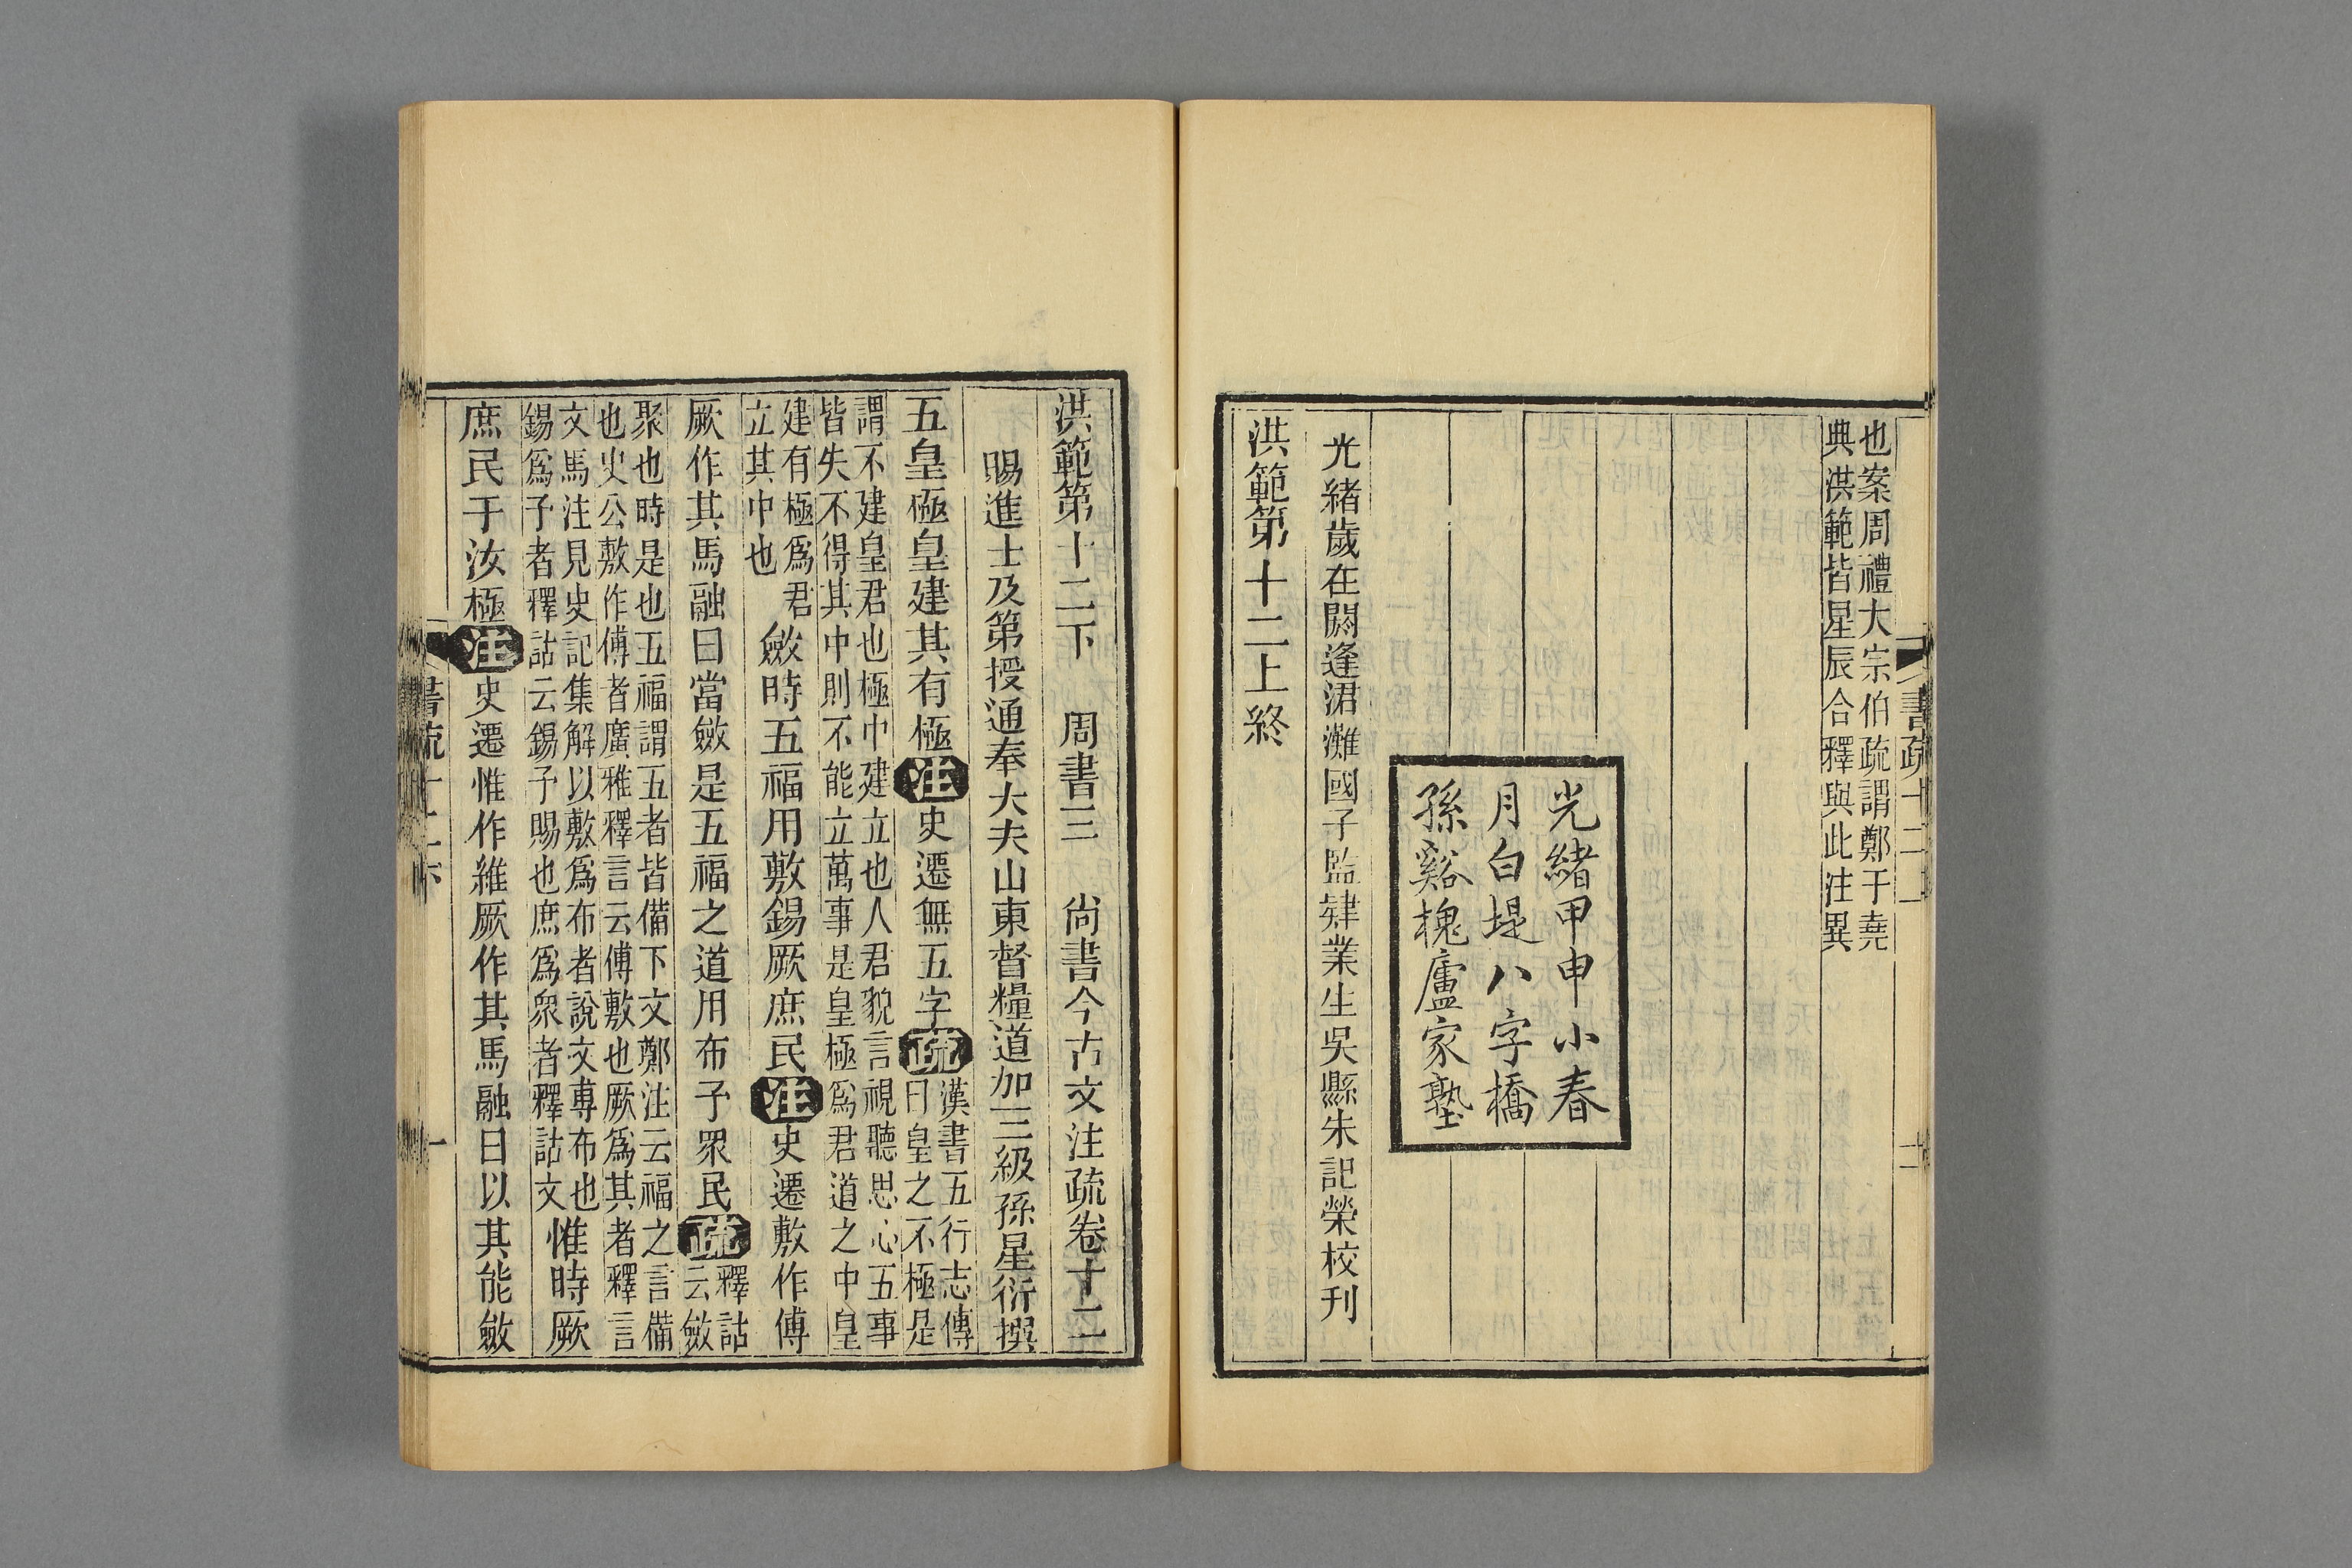 也案周禮大宗伯疏謂鄭于堯
典洪範皆星辰合釋與此注異
光緒甲申小春
月白堤八字橋
孫谿槐廬家塾
光緒歲在閼逢涒灘國子監肄業生吳縣朱記榮校刊
洪範第十二上終
洪範第十二下 周書三 尚書今古文注疏卷十二
賜進士及第授通奉大夫山東督糧道加三級孫星衍撰
五皇極皇建其有極注史遷無五字疏漢書五行志傳
曰皇之不極是
謂不建皇君也極中建立也人君貌言視聽思心五事
皆失不得其中則不能立萬事是皇極爲君道之中皇
建有極爲君
立其中也
斂時五福用敷錫厥庶民注史遷敷作傅
厥作其馬融曰當斂是五福之道用布予眾民疏釋詁
云斂
聚也時是也五福謂五者皆備下文鄭注云福之言備
也史公敷作傅者廣雅釋言云傅敷也厥爲其者釋言
文馬注見史記集解以敷爲布者說文尃布也
錫爲予者釋詁云錫予賜也庶爲眾者釋詁文
惟時厥
庶民于汝極注史遷惟作維厥作其馬融曰以其能斂
書疏十二